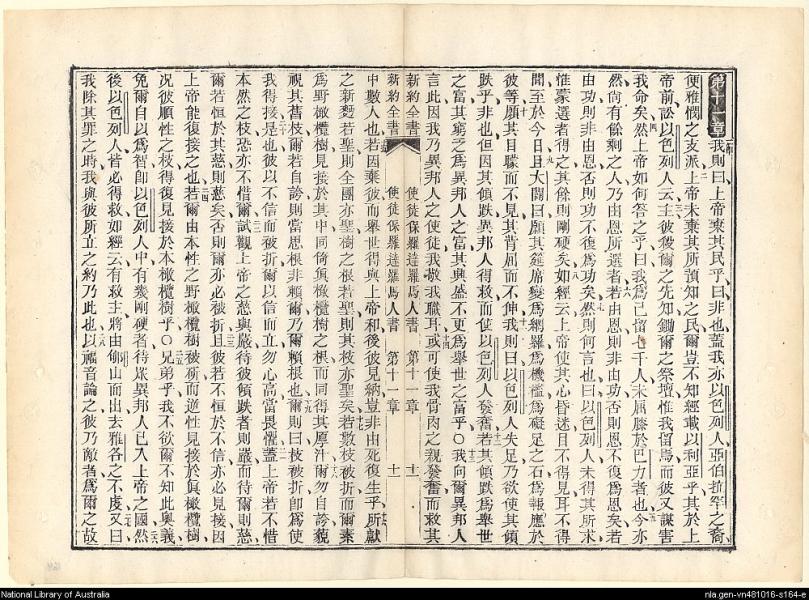 第十一章我則曰上帝棄其民乎曰非也蓋我亦以色列人亞伯拉罕之裔
便雅憫之支派上帝未棄其所預知之民爾豈不知經載以利亞乎其於上
帝前訟以色列人云主彼殺爾之先知鋤爾之祭壇惟我留焉而彼又謀害
我命矣然上帝如何答之乎曰我爲己留七千人未屈膝於巴力者也今亦
然尚有餘剩之人乃由恩所選者若由恩則非由功否則恩不復爲恩矣若
由功則非由恩否則功不復爲功矣然則何言也曰以色列人未得其所求
惟蒙選者得之其餘則剛硬矣如經云上帝使其心昏迷目不得見耳不得
聞至於今日且大闢曰願其筵席變爲網羅爲機檻爲礙足之石爲報應於
彼等願其目矇而不見其背屈而不伸我則曰以色列人失足乃欲使其傾
跌乎非也但因其傾跌異邦人得救而使以色列人發奮若其傾跌爲舉世
之富其窮乏爲異邦人之富其興盛不更爲舉世之富乎○我向爾異邦人
言此因我乃異邦人之使徒我敬我職耳或可使我骨肉之親發奮而救其
新約全書 使徒保羅達羅馬人書 第十一章 十一
新約全書 使徒保羅達羅馬人書 第十一章 十二
中數人也若因棄彼而舉世得與上帝和後彼見納豈非由死復生乎所獻
之新麪若聖則全團亦聖樹之根若聖則其枝亦聖矣若數枝被折而爾素
爲野橄欖樹見接於其中同倚眞橄欖樹之根而同得其厚汁爾勿自誇藐
視其舊枝爾若自誇則當思根非賴爾乃爾賴根也爾則曰枝被折卽爲使
我得接是也彼以不信而被折爾以信而立勿心高當畏懼蓋上帝若不惜
本然之枝恐亦不惜爾試觀上帝之慈與嚴待彼傾跌者則嚴而待爾則慈
爾若恒於其慈則慈矣否則爾亦必被折且彼若不恒於不信亦必見接因
上帝能復接之也若爾由本性之野橄欖樹被斫而逆性見接於眞橄欖樹
況彼順性之枝得復見接於本橄欖樹乎○兄弟乎我不欲爾不知此奧義
免爾自以爲智卽以色列人中有幾剛硬者待眾異邦人已入上帝之國然
後以色列人皆必得救如經云有救主將由郇山而出去雅各之不虔又曰
我除其罪之時我與彼所立之約乃此也以福音論之彼乃敵者爲爾之故
National Library of Australia
nla.gen-vn481016-s164-e